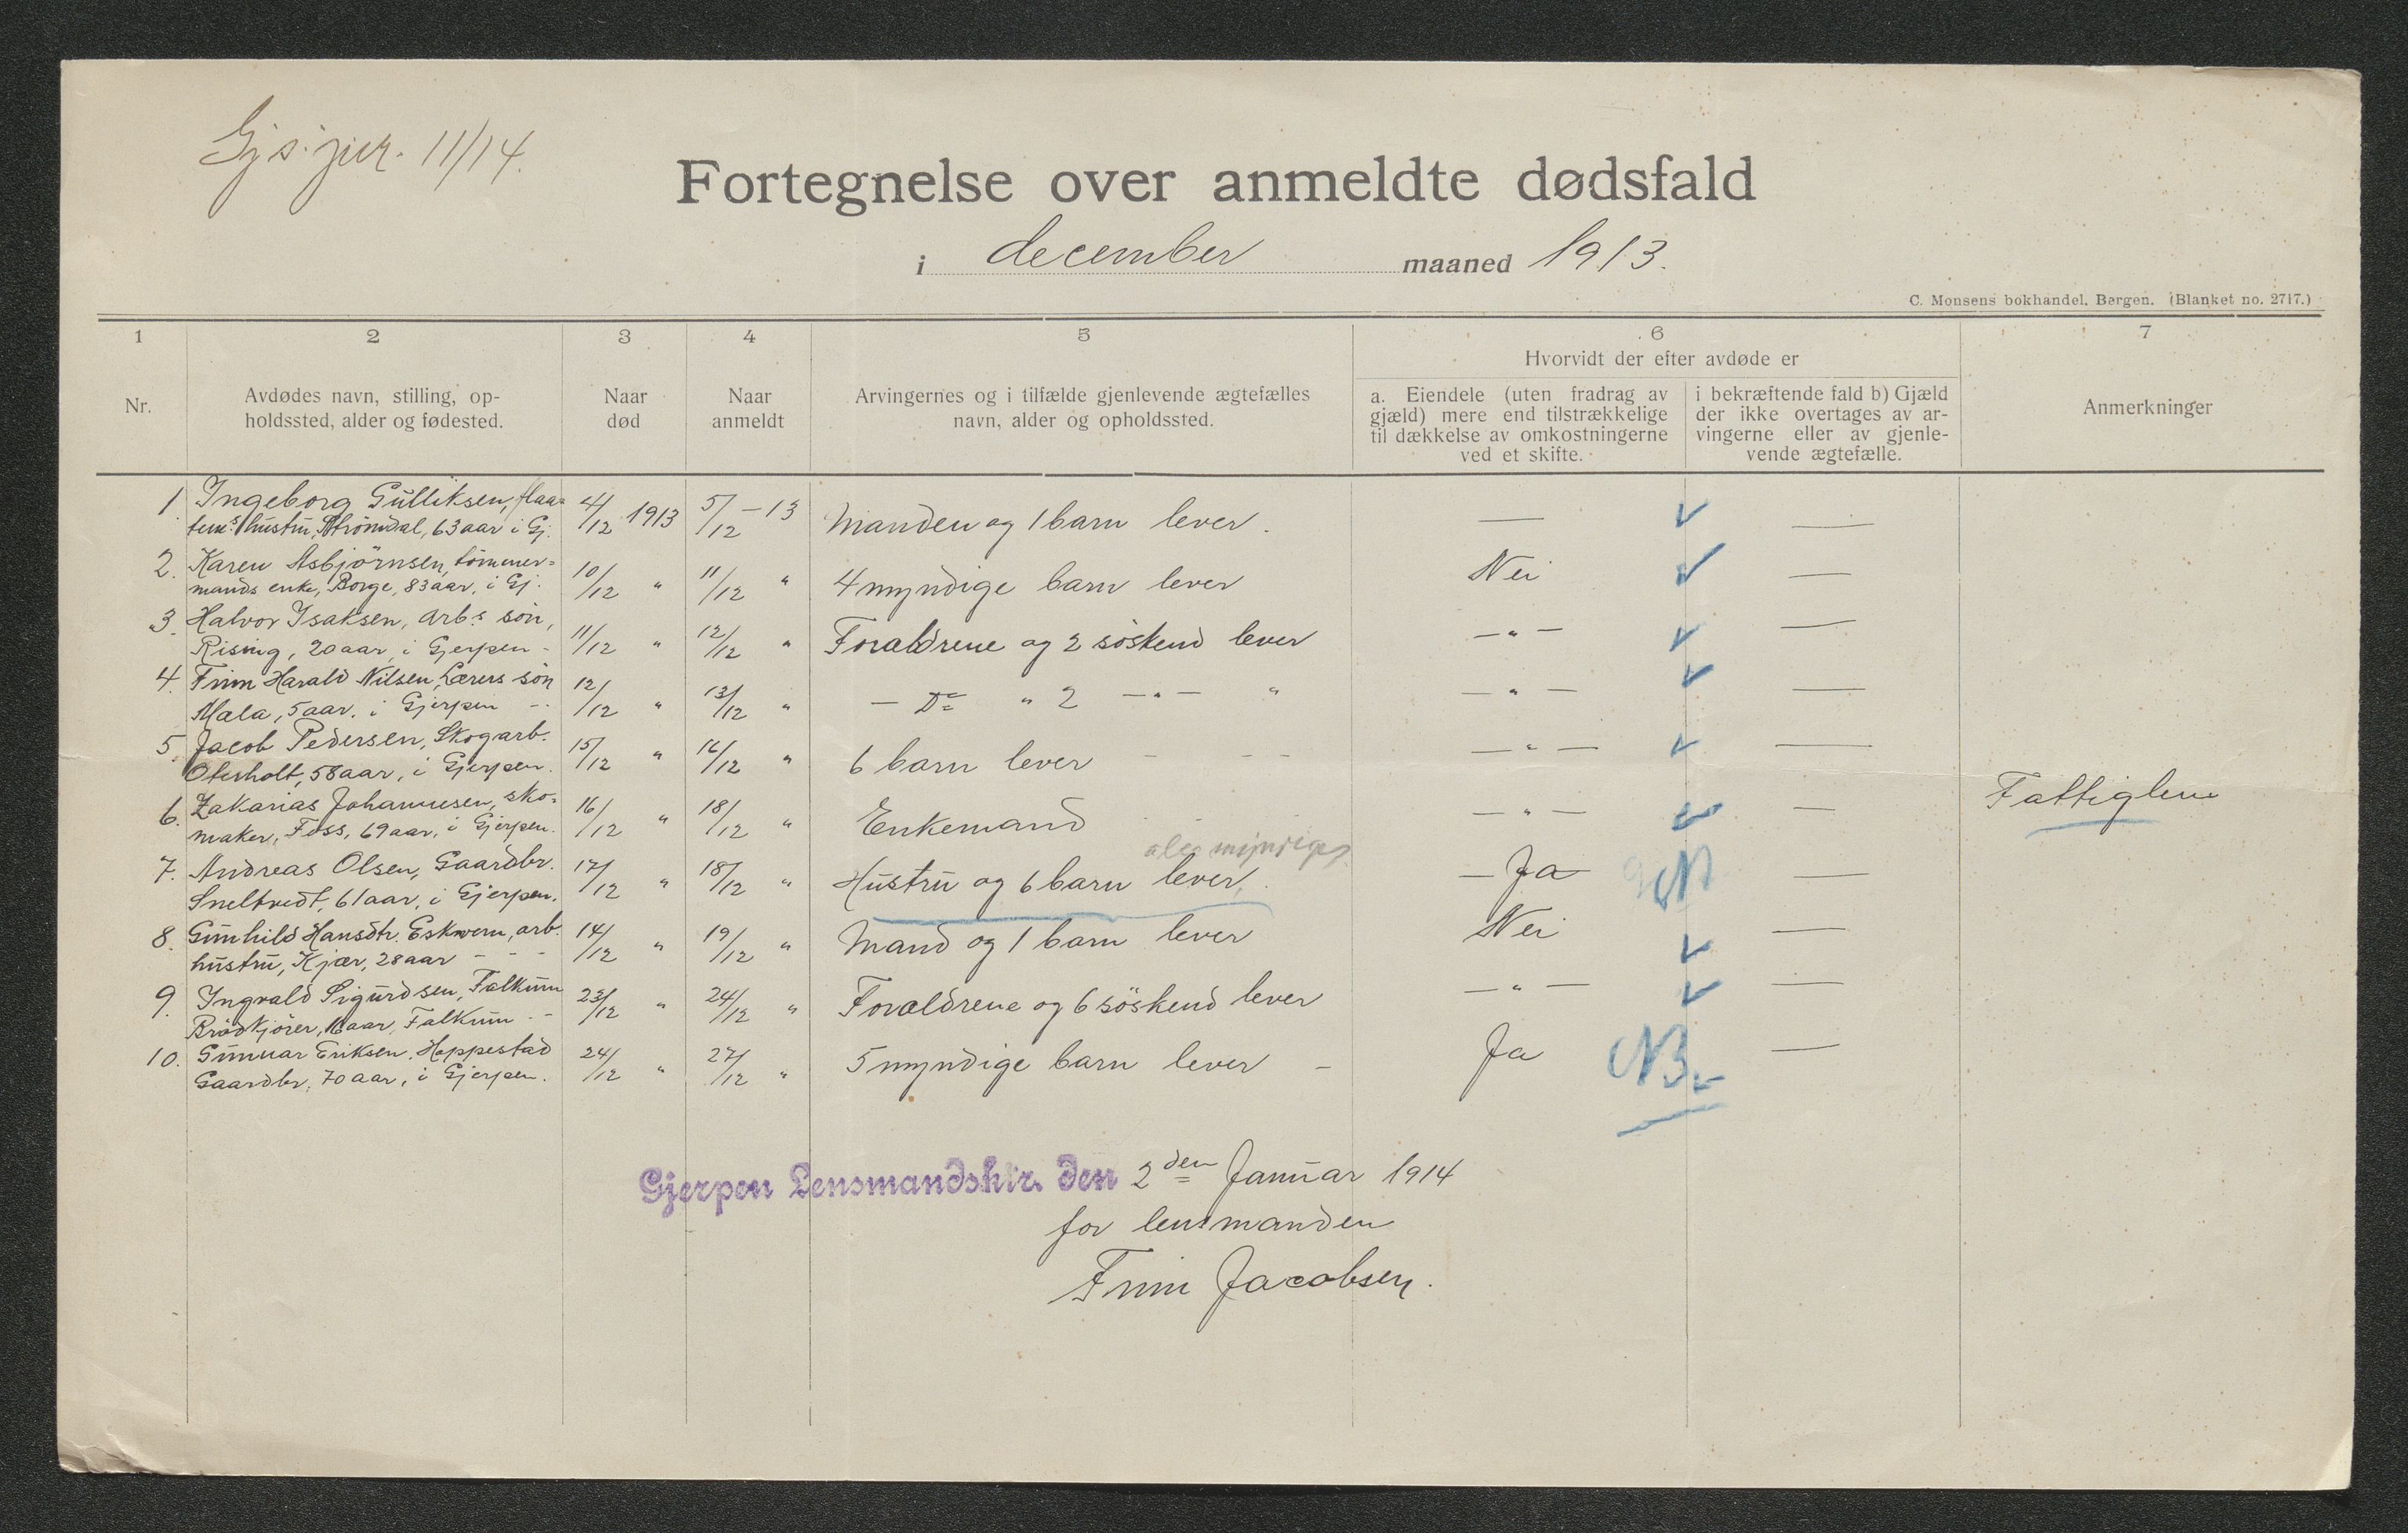 Gj. s. jur. 11/14.
Fortegnelse over anmeldte dødsfald
i december maaned 1913.
C. Monsens bokhandel, Bergen. (Blanket no. 2717.)
1 2 3 4 5 6 7
Hvorvidt der efter avdøde er
Nr.
Avdødes navn, stilling, op-
holdssted, alder og fødested.
Naar
død
Naar
anmeldt
Arvingernes og i tilfælde gjenlevende ægtefælles
navn, alder og opholdssted.
a. Eiendele (uten fradrag av
gjæld) mere end tilstrækkelige
til dækkelse av omkostningerne
ved et skifte.
i bekræftende fald b) Gjæld
der ikke overtages av ar-
vingerne eller av gjenle-
vende ægtefælle.
Anmerkninger
1. Ingeborg Gulliksen, flaa=
hustru, Strömdal, 63 aar i Gj. 4/12 1913 5/12 -13 Manden og 1 barn lever. — —
2. Karen Asbjörnsen, tömmer=
mands enke, Borge, 83 aar, i Gj. 10/12 " 11/12 " 4 myndige barn lever Nei —
3. Halvor Isaksen, arb.s sön,
Rising, 20 aar, i Gjerpen - 11/12 " 12/12 " Forældrene og 2 söskend lever — " — —
4. Finn Harald Nilsen, Lærers sön
Mæla, 5 aar. i Gjerpen -. 12/12 " 13/12 " — Do " 2 — " — " — " — —
5. Jacob Pedersen, Skogarb.
Oterholt, 58 aar, i Gjerpen. 15/12 " 16/12 " 6 barn lever - - - — " — —
6. Zakarias Johannesen, sko=
maker, Foss, 69 aar, i Gjerpen. 16/12 " 18/12 " Enkemand — " — — Fattiglem
alle myndige
7. Andreas Olsen, Gaardbr.
Sneltvedt, 61 aar, i Gjerpen. 17/12 " 18/12 " Hustru og 6 barn lever. — Ja —
8. Gunhild Hansdtr. Eskvem, arb.
hustru, Kjær, 28 aar - - - 14/12 " 19/12 " Mand og 1 barn lever Nei —
9. Ingvald Sigurdsen, Falkum
Brödkjörer, 16 aar, Falkum - - 23/12 " 24/12 " Forældrene og 6 söskend lever — " — —
10. Gunnar Eriksen. Hoppestad
Gaardbr, 70 aar, i Gjerpen. 24/12 " 27/12 " 5 myndige barn lever - Ja NB. —
Gjerpen Lensmandsktr. den 2den Januar 1914
for lensmanden
Finn Jacobsen.